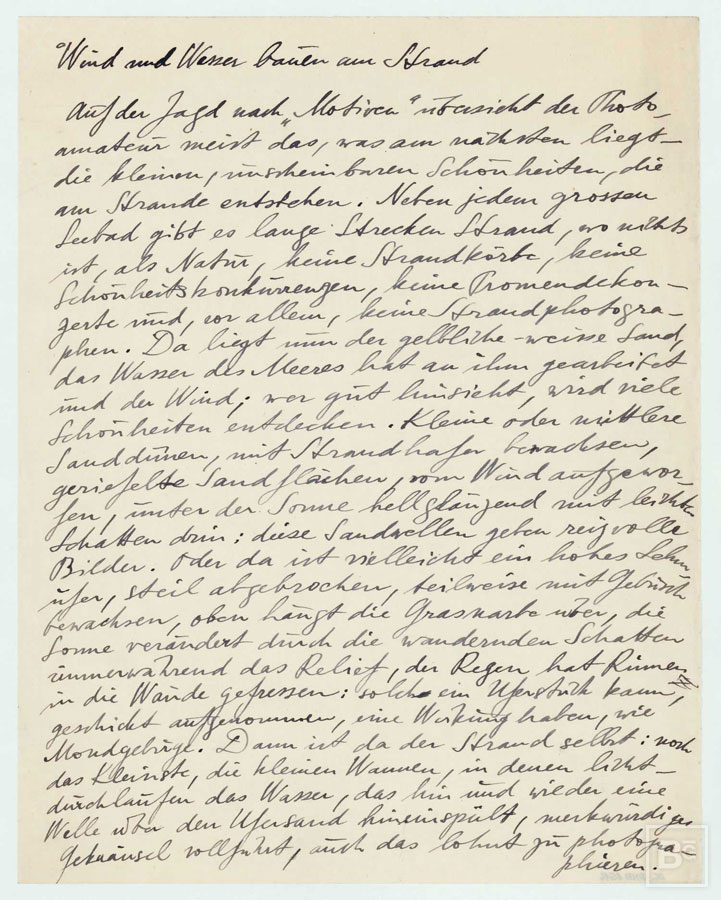 Wind und Wasser bauen am Strand
Auf der Jagd nach „Motiven“ übersieht der Photo-
amateur meist das, was am nächsten liegt -
die kleinen, unscheinbaren Schönheiten, die
am Strande entstehen. Neben jedem grossen
Seebad gibt es lange Strecken Strand, wo nichts
ist, als Natur, keine Strandkörbe, keine
Schönheitskonkurrenzen, keine Promendekon-
zerte und, vor allem, keine Strandphotogra-
phen. Da liegt nun der gelbliche-weisse Sand,
das Wasser des Meeres hat an ihm gearbeitet
und der Wind; wer gut hinsieht, wird viele
Schönheiten entdecken. Kleine oder mittlere
Sanddünen, mit Strandhafer bewachsen,
geriefelte Sandflächen, vom Wind aufgewor-
fen, unter der Sonne hellglänzend mit leichten
Schatten drin: diese Sandwellen geben reizvolle
Bilder. Oder da ist vielleicht ein hohes Lehm
ufer, steil abgebrochen, teilweise mit Gebüsch
bewachsen, oben hängt die Grasnarbe über, die
Sonne verändert durch die wandernden Schatten
immerwährend das Relief, der Regen hat Rinnen
in die Wände gefressen: solch ein Uferstück kann,
geschickt aufgenommen, eine Wirkung haben, wie
Mondgebirge. Dann ist da der Strand selbst: noch
das Kleinste, die kleinen Wannen, in denen licht-
durchlaufen das Wasser, das hin und wieder eine
Welle über den Ufersand hineinspült, merkwürdiges
Gekräusel vollführt, auch das lohnt zu photogra-
phieren.